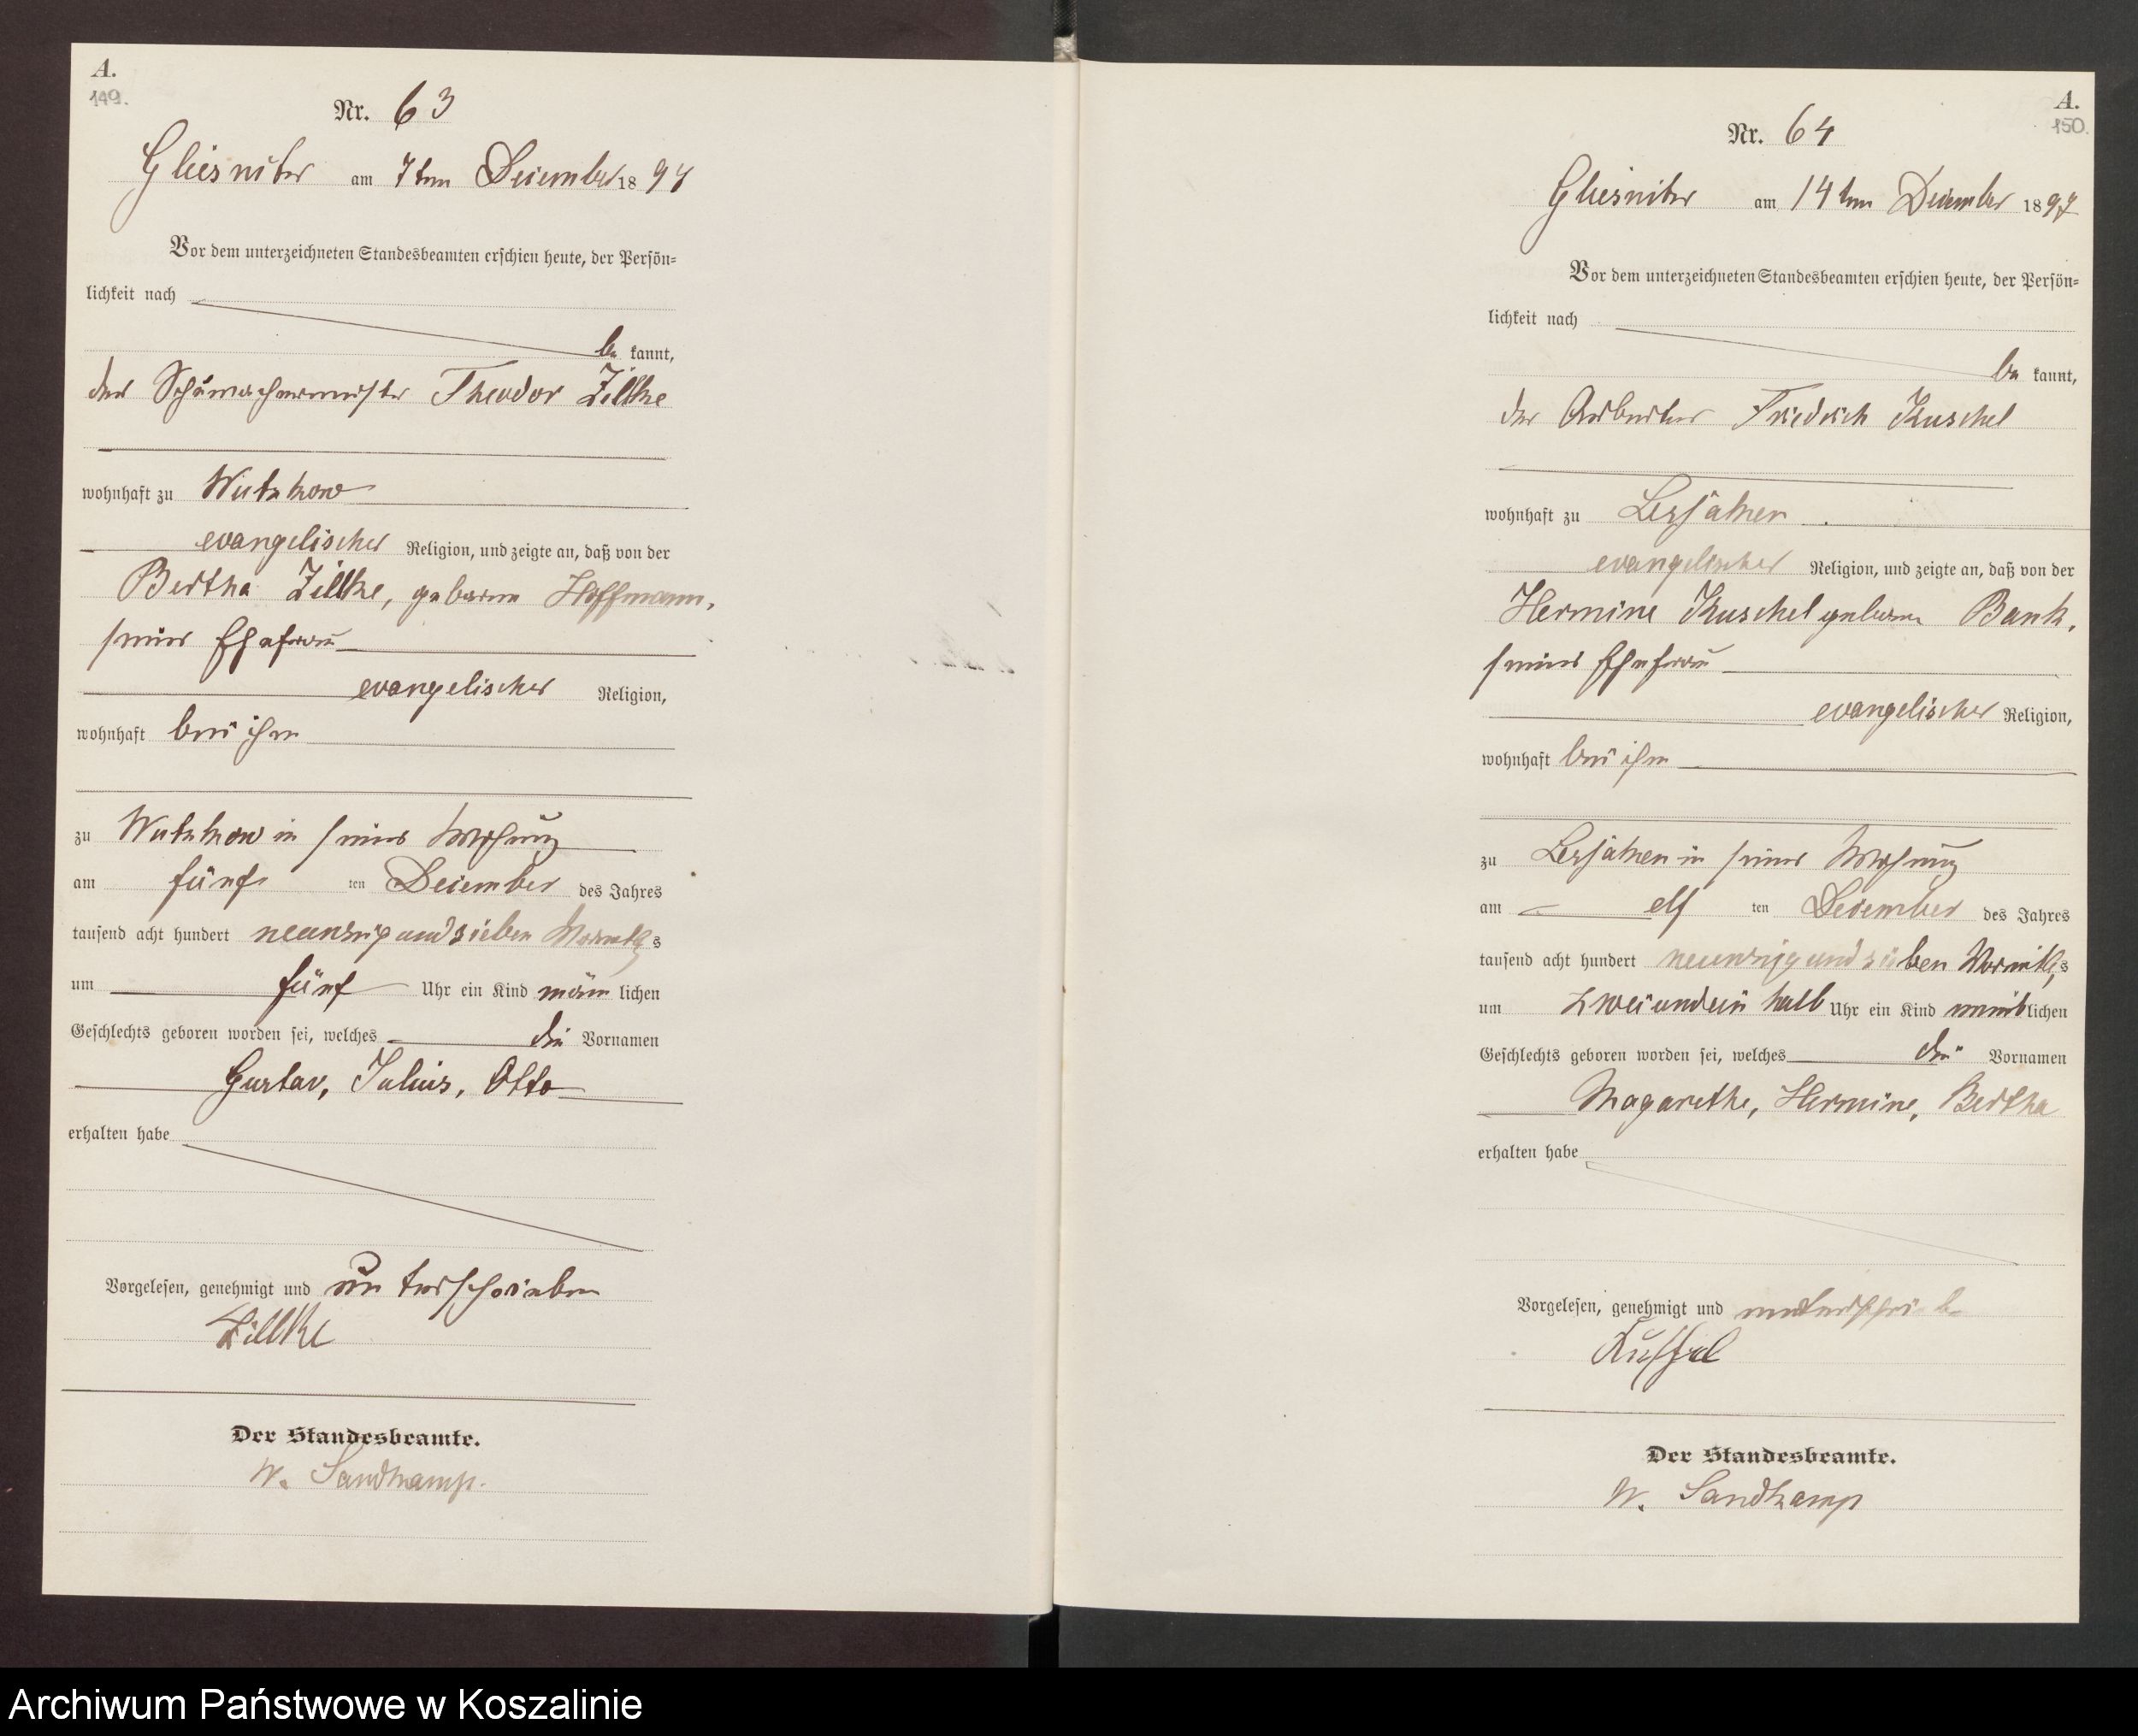 A.
149.
Nr. 63
Gliesnitz am 7ten December 1897
Vor dem unterzeichneten Standesbeamten erschien heute, der Persön=
lichkeit nach
be kannt,
der Schumachermeister Theodor Zillke
wohnhaft zu Wutzkow
evangelischer Religion, und zeigte an, daß von der
Bertha Zillke, geborene Hoffmann,
seiner Ehefrau
evangelischer Religion,
wohnhaft bei ihm
zu Wutzkow in seiner Wohnung
am fünf ten December des Jahres
tausend acht hundert neunzig und sieben Vormittgs
um fünf Uhr ein Kind männ lichen
Geschlechts geboren worden sei, welches die Vornamen
Gustav, Julius, Otto
erhalten habe
Vorgelesen, genehmigt und unterschrieben
Zillke
Der Standesbeamte.
W. Sandkamp.
A.
150.
Nr. 64
Gliesnitz am 14ten December 1897
Vor dem unterzeichneten Standesbeamten erschien heute, der Persön=
lichkeit nach
be kannt,
der Arbeiter Friedrich Kuschel
wohnhaft zu
evangelischer Religion, und zeigte an, daß von der
Hermine Kuschel geborene Bank,
seiner Ehefrau
evangelischer Religion,
wohnhaft bei ihm
zu in seiner Wohnung
am elf ten December des Jahres
tausend acht hundert neunzig und sieben Vormittgs
um zwei und ein halb Uhr ein Kind weib lichen
Geschlechts geboren worden sei, welches die Vornamen
Magarethe, Hermine, Bertha
erhalten habe
Vorgelesen, genehmigt und unterschrieben
Kuschel
Der Standesbeamte.
W. Sandkamp
Archiwum Państwowe w Koszalinie